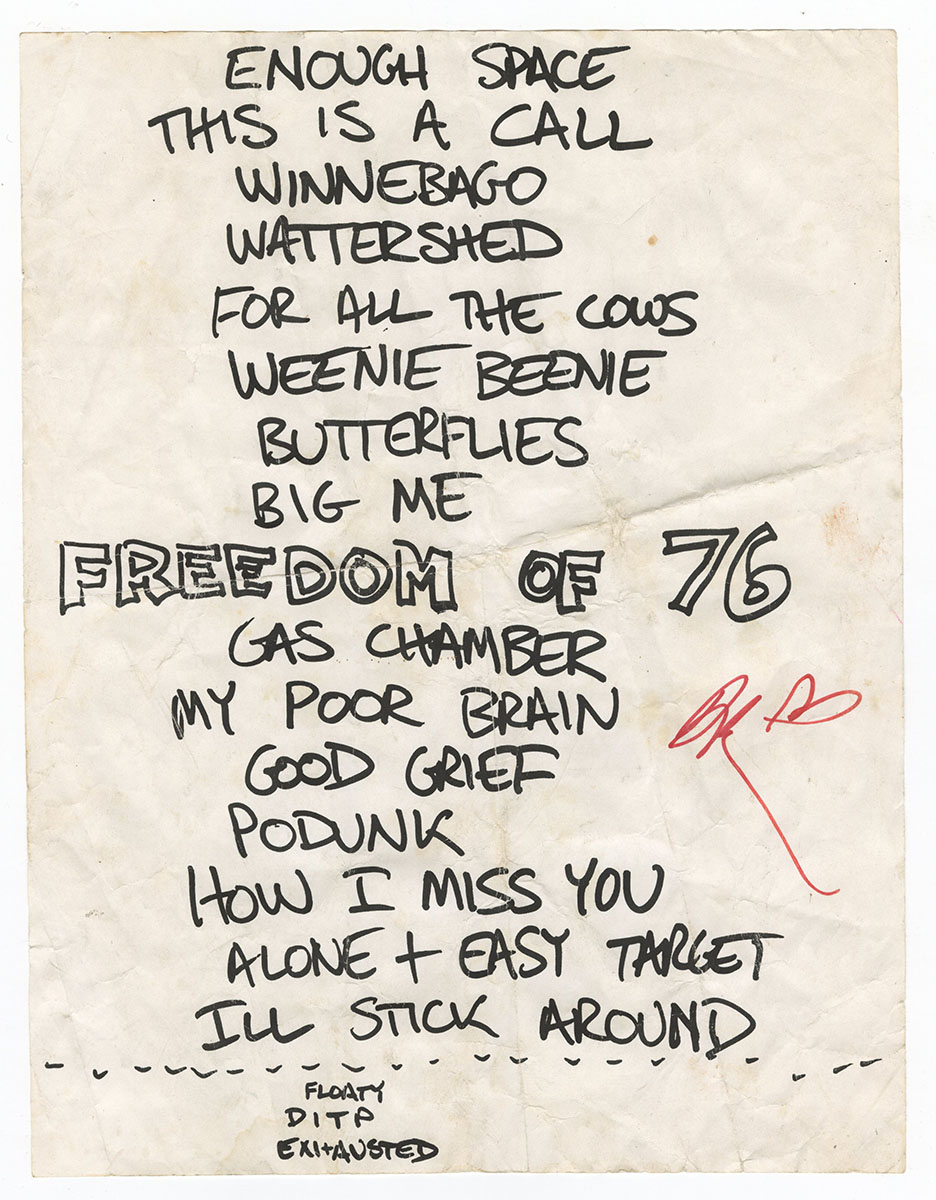 ENOUGH SPACE
THIS IS A CALL
WINNEBAGO
WATTERSHED
FOR ALL THE COWS
WEENIE BEENIE
BUTTERFLIES
BIG ME
FREEDOM OF 76
GAS CHAMBER
MY POOR BRAIN
GOOD GRIEF
PODUNK
HOW I MISS YOU
ALONE + EASY TARGET
ILL STICK AROUND
FLOATY
DITP
EXHAUSTED